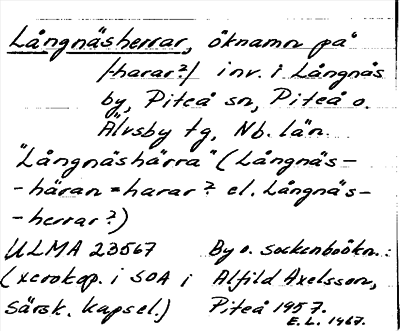 Långnäsherrar, öknamn på
/harar?/ inv. i Långnäs
by, Piteå sn, Piteå o.
Älvsby tg, Nb. län.
"Långnäshärra" (Långnäs-
-häran = harar? el. Långnäs-
-herrar?)
ULMA 23567 By o. sockenboökn.:
(xerokop. i SOA i Alfild Axelsson,
särsk. kapsel.) Piteå 1957.
E.L. 1967.